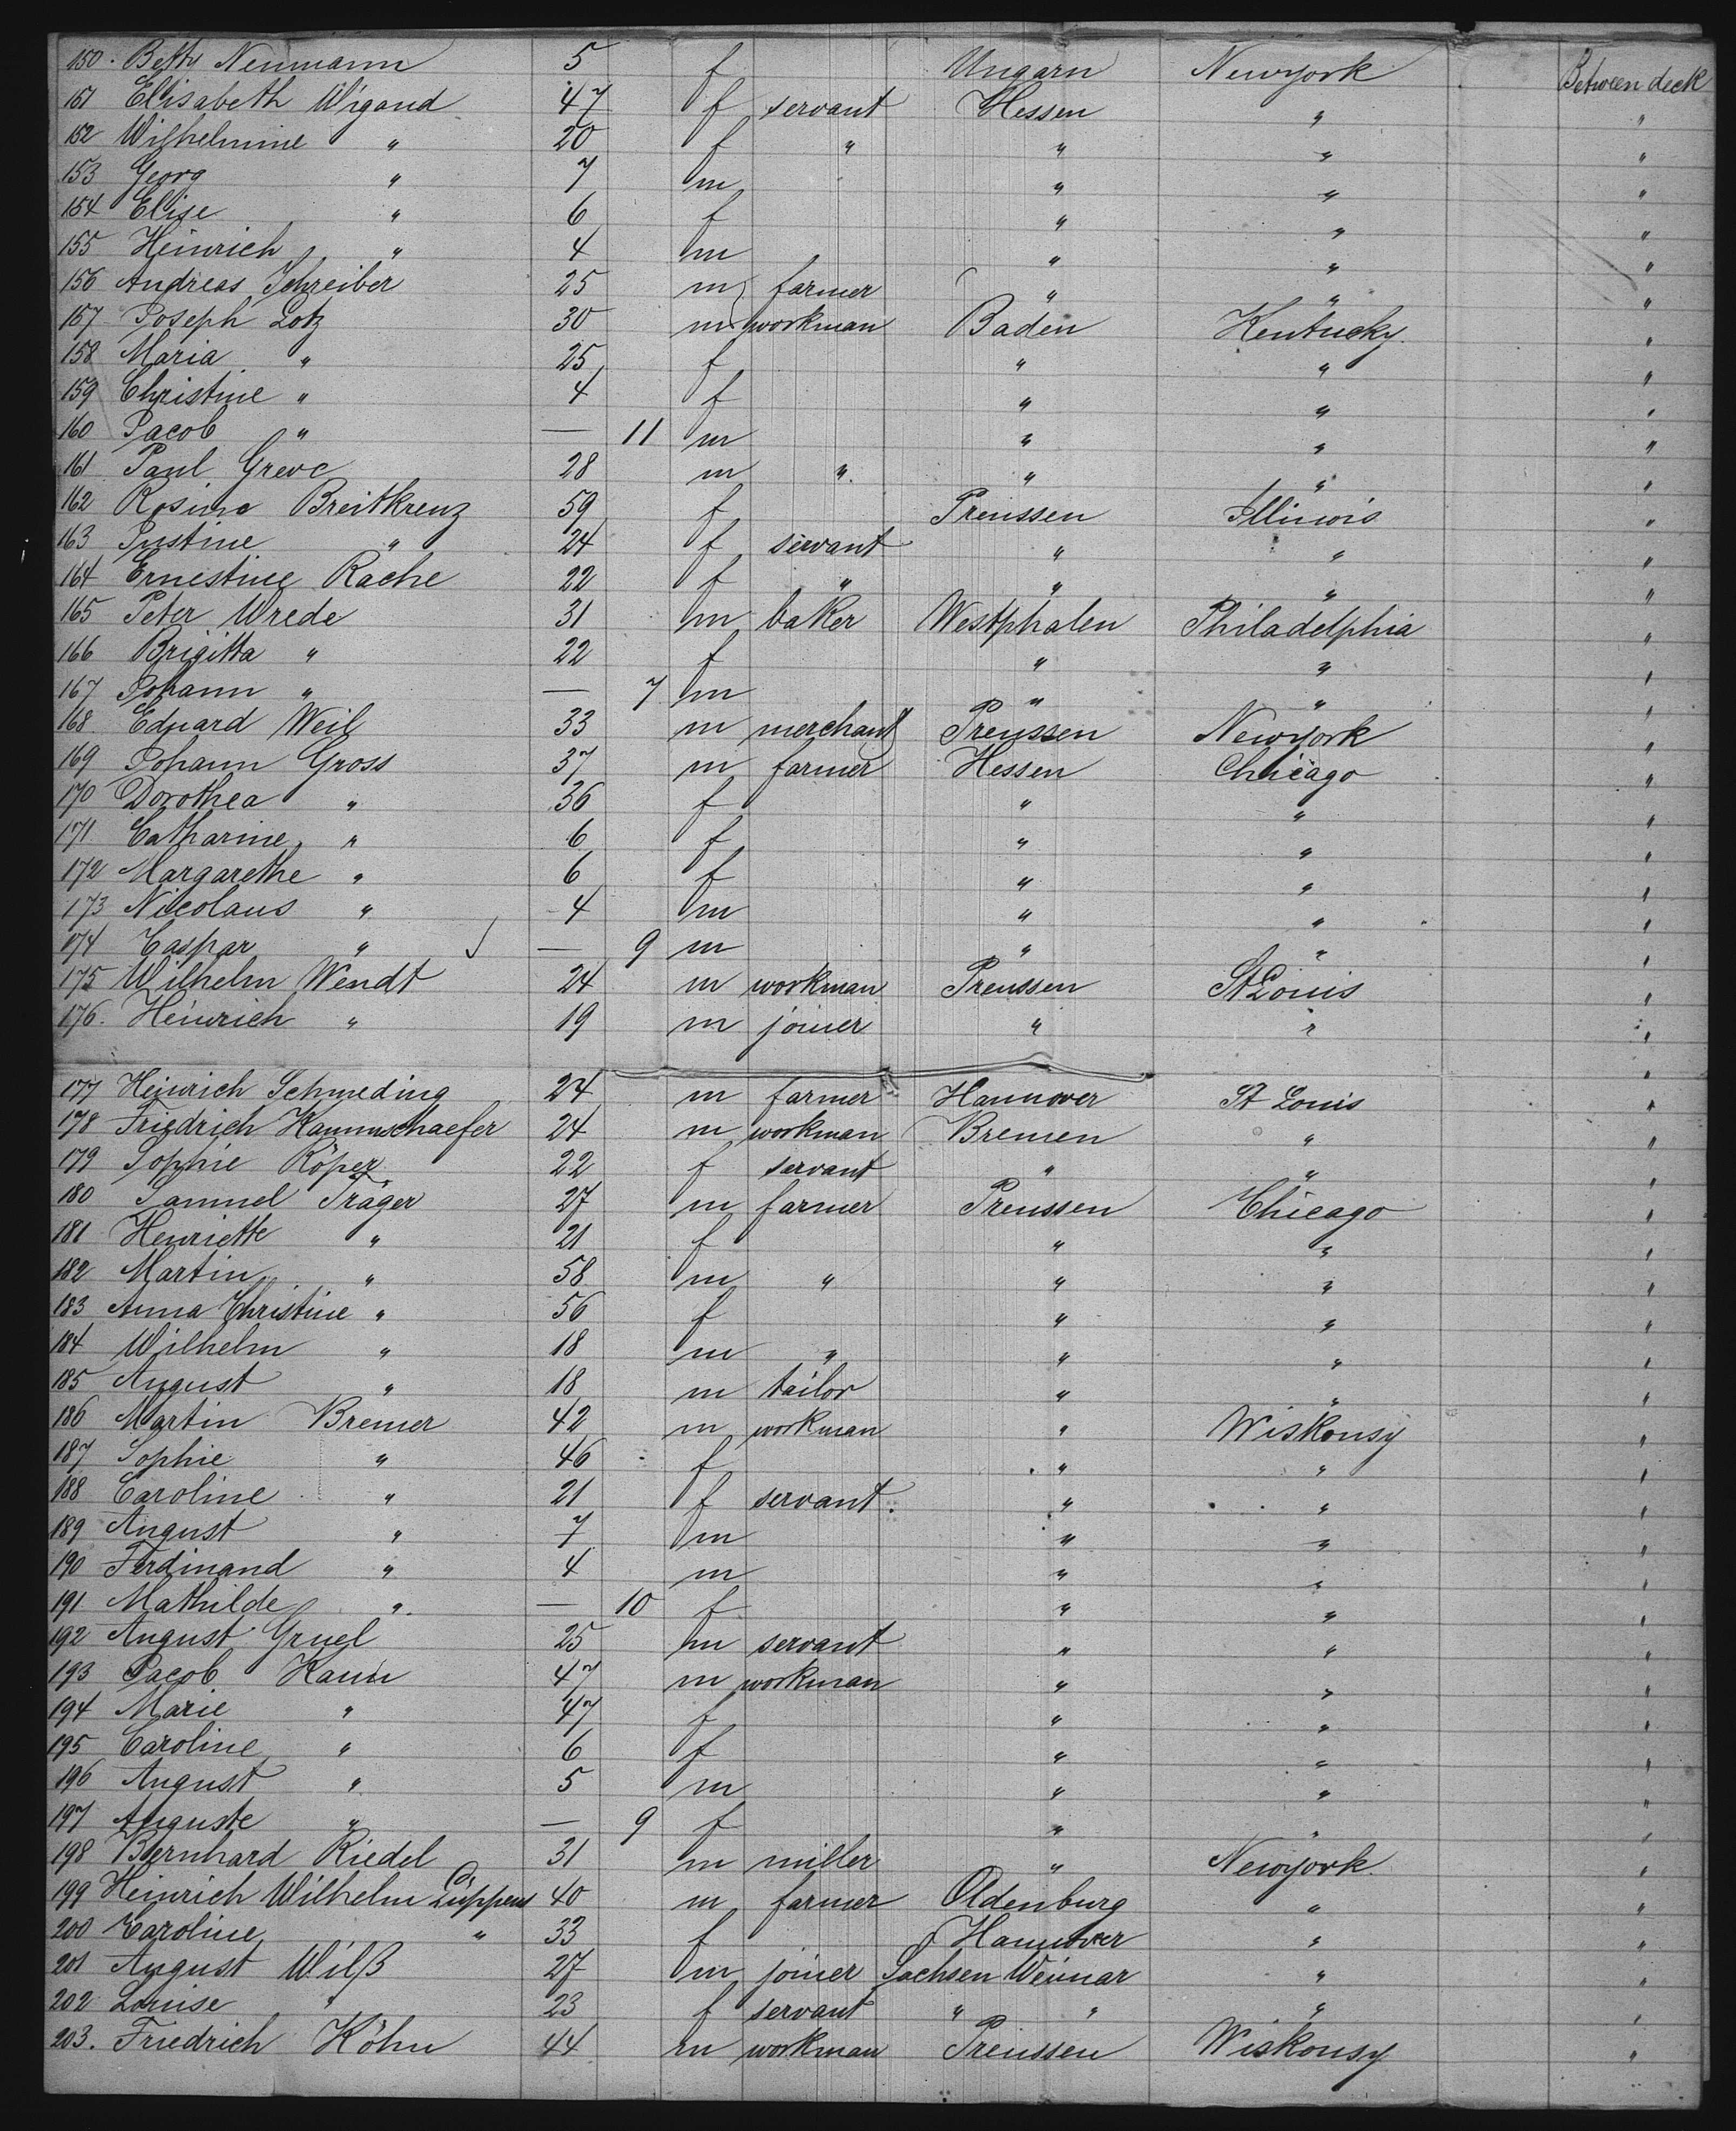 150. Betty Neumann 5 f Ungarn Newyork Between deck
151 Elisabeth Wigand 47 f servant Hessen " "
152 Wilhelmine " 20 f " " " "
153 Georg " 7 m " " "
154 Elise " 6 f " " "
155 Heinrich " 4 m " " "
156 Andreas Schreiber 25 m farmer " " "
157 Joseph Lotz 30 m workman Baden Kentucky. "
158 Maria " 25 f " " "
159 Christine " 4 f " " "
160 Jacob " — 11 m " " "
161 Paul Greve 28 m " " " "
162 Rosine Breitkreuz 59 f Preussen Illinois "
163 Justine " 24 f servant " " "
164 Ernestine Rache 22 f " " " "
165 Peter Wrede 31 m baker Westphalen Philadelphia "
166 Brigitta " 22 f " " "
167 Johann " — 7 m " " "
168 Eduard Weil 33 m merchant Preussen Newyork "
169 Johann Gross 37 m farmer Hessen Chicago "
170 Dorothea " 36 f " " "
171 Catharine " 6 f " " "
172 Margarethe " 6 f " " "
173 Nicolaus " 4 m " " "
174 Caspar " — 9 m " " "
175 Wilhelm Wendt 24 m workman Preussen St Louis "
176. Heinrich " 19 m joiner " " "
177 Heinrich Schmeding 24 m farmer Hannover St Louis "
178 Friedrich Kammschaefer 24 m workman Bremen " "
179 Sophie Röper 22 f servant " " "
180 Samuel Träger 27 m farmer Preussen Chicago "
181 Henriette " 21 f " " "
182 Martin " 58 m " " " "
183 Anna Christine " 56 f " " "
184 Wilhelm " 18 m " " " "
185 August " 18 m tailor " " "
186 Martin Bremer 42 m workman " Wiskonsy "
187 Sophie " 46 f " " "
188 Caroline " 21 f servant " " "
189 August " 7 m " " "
190 Ferdinand " 4 m " " "
191 Mathilde " — 10 f " " "
192 August Gruel 25 m servant " " "
193 Jacob Kann 47 m workman " " "
194 Marie " 47 f " " "
195 Caroline " 6 f " " "
196 August " 5 m " " "
197 Auguste " — 9 f " " "
198 Bernhard Riedel 31 m miller " Newyork "
199 Heinrich Wilhelm Lüppens 40 m farmer Oldenburg " "
200 Caroline " 33 f Hannover " "
201 August Wilß 27 m joiner Sachsen Weimar " "
202 Louise " 23 f servant " " " "
203. Friedrich Köhn 44 m workman Preussen Wiskonsy "